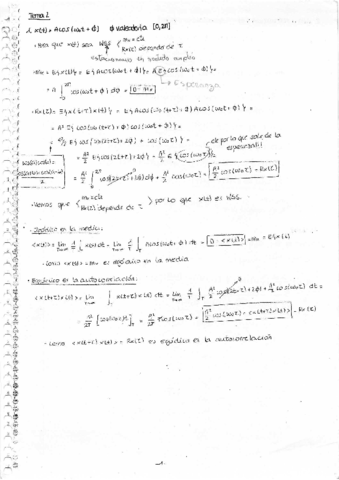 Tema 2
1. x(t) = A cos(ωot + ϕ)   ϕ valeatoria [0, 2π]
• Para que x(t) sea WSS { mx = cte
Rx(τ) depende de τ
estacionario en sentido amplio
• mx = E{x(t)} = E{A cos(ωot + ϕ)} = A E{cos(ωot + ϕ)} =
Esperanza
= A ∫ cos(ωot + ϕ) dϕ = 0 = mx
• Rx(τ) = E{x(t+τ) x(t)} = E{A cos(ωo(t+τ) + ϕ) A cos(ωot + ϕ)} =
= A² E{cos(ωo(t+τ) + ϕ) cos(ωot + ϕ)} =
= A²/2 E{cos(ωo(2t+τ) + 2ϕ) + cos(ωoτ)} =
= A²/2 E{cos(2t+τ) + 2ϕ} + A²/2 E{cos(ωoτ)} =
= A²/2 ∫ cos(ωo(2t+τ) + 2ϕ) dϕ + A²/2 cos(ωoτ) = A²/2 cos(ωoτ) = Rx(τ)
• Tenemos que { mx = cte
Rx(τ) depende de τ } por lo que x(t) es WSS.
• Ergódico en la media:
<x(t)> = lim 1/T ∫ x(t) dt = lim 1/T ∫ A cos(ωot + ϕ) dt = 0 = <x(t)> = mx = E{x(t)}
• Como <x(t)> = mx es ergódico en la media
• Ergódico en la autocorrelación:
<x(t+τ) x(t)> = lim 1/T ∫ x(t+τ) x(t) dt = lim 1/T ∫ A²/2 cos(ωo(2t+τ) + 2ϕ) + A²/2 cos(ωoτ) dt =
= A²/2T [cos(ωoτ) t] = A²/2T T cos(ωoτ) = A²/2 cos(ωoτ) = <x(t+τ) x(t)> = Rx(τ)
• Como <x(t+τ) x(t)> = Rx(τ) es ergódico en la autocorrelación